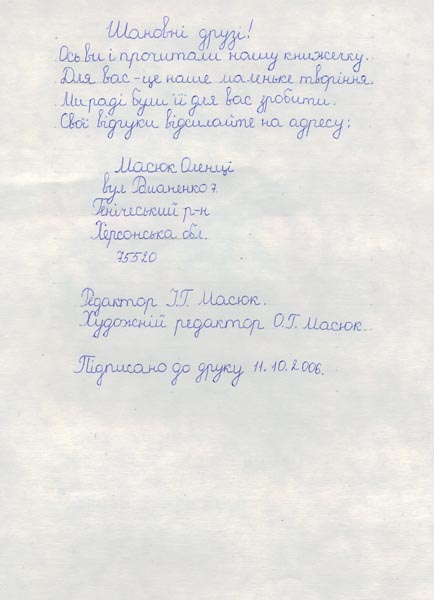 Шановні друзі!
Ось ви і прочитали нашу книжечку.
Для вас - це наше маленьке творіння.
Ми раді були її для вас зробити.
Свої відгуки відсилайте на адресу:
Масюк Оленці
вул 7.
Генічеський р-н
Херсонська обл.
75520
Редактор І.Г. Масюк.
Художній редактор О.Г. Масюк.
Підписано до друку 11.10.2006.